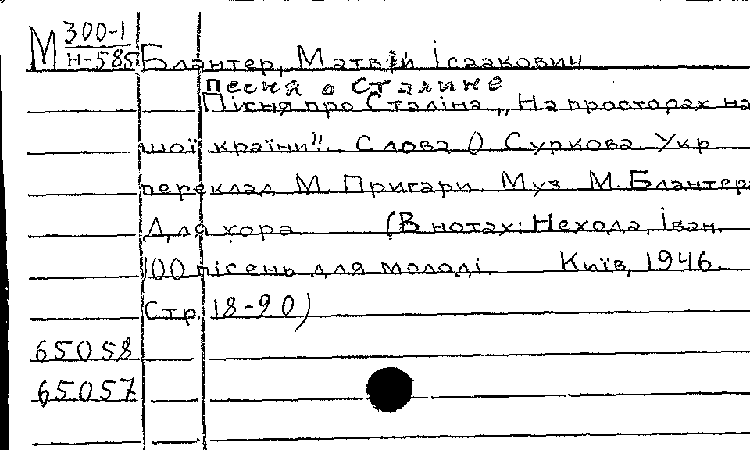 М 300-1
Н-585 Блантер, Матвій Ісаакович
Песня о Сталине
Пісня про Сталіна „На просторах на
шої країни". Слова О Суркова Укр
переклад М. Пригари. Муз М. Блантера
Для хора (В нотах: Нехода, Іван.
100 пісень для молоді. Київ, 1946.
Стр. 18-90)
65058
65057